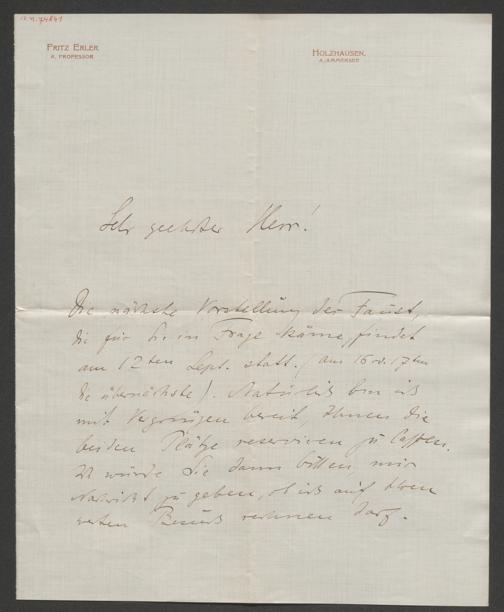 FRITZ ERLER
K. PROFESSOR
HOLZHAUSEN,
A/AMMERSEE
Sehr geehrter Herr!
Die nächste Vorstellung des Faust,
die für Sie in Frage käme, findet
am 12ten Sept. statt. (am 16 u. 17ten
die übernächste). Natürlich bin ich
mit Vergnügen bereit, Ihnen die
beiden Plätze reserviren zu lassen.
Ich würde Sie dann bitten, mir
Nachricht zu geben, ob ich auf Ihren
werten Besuch rechnen darf.